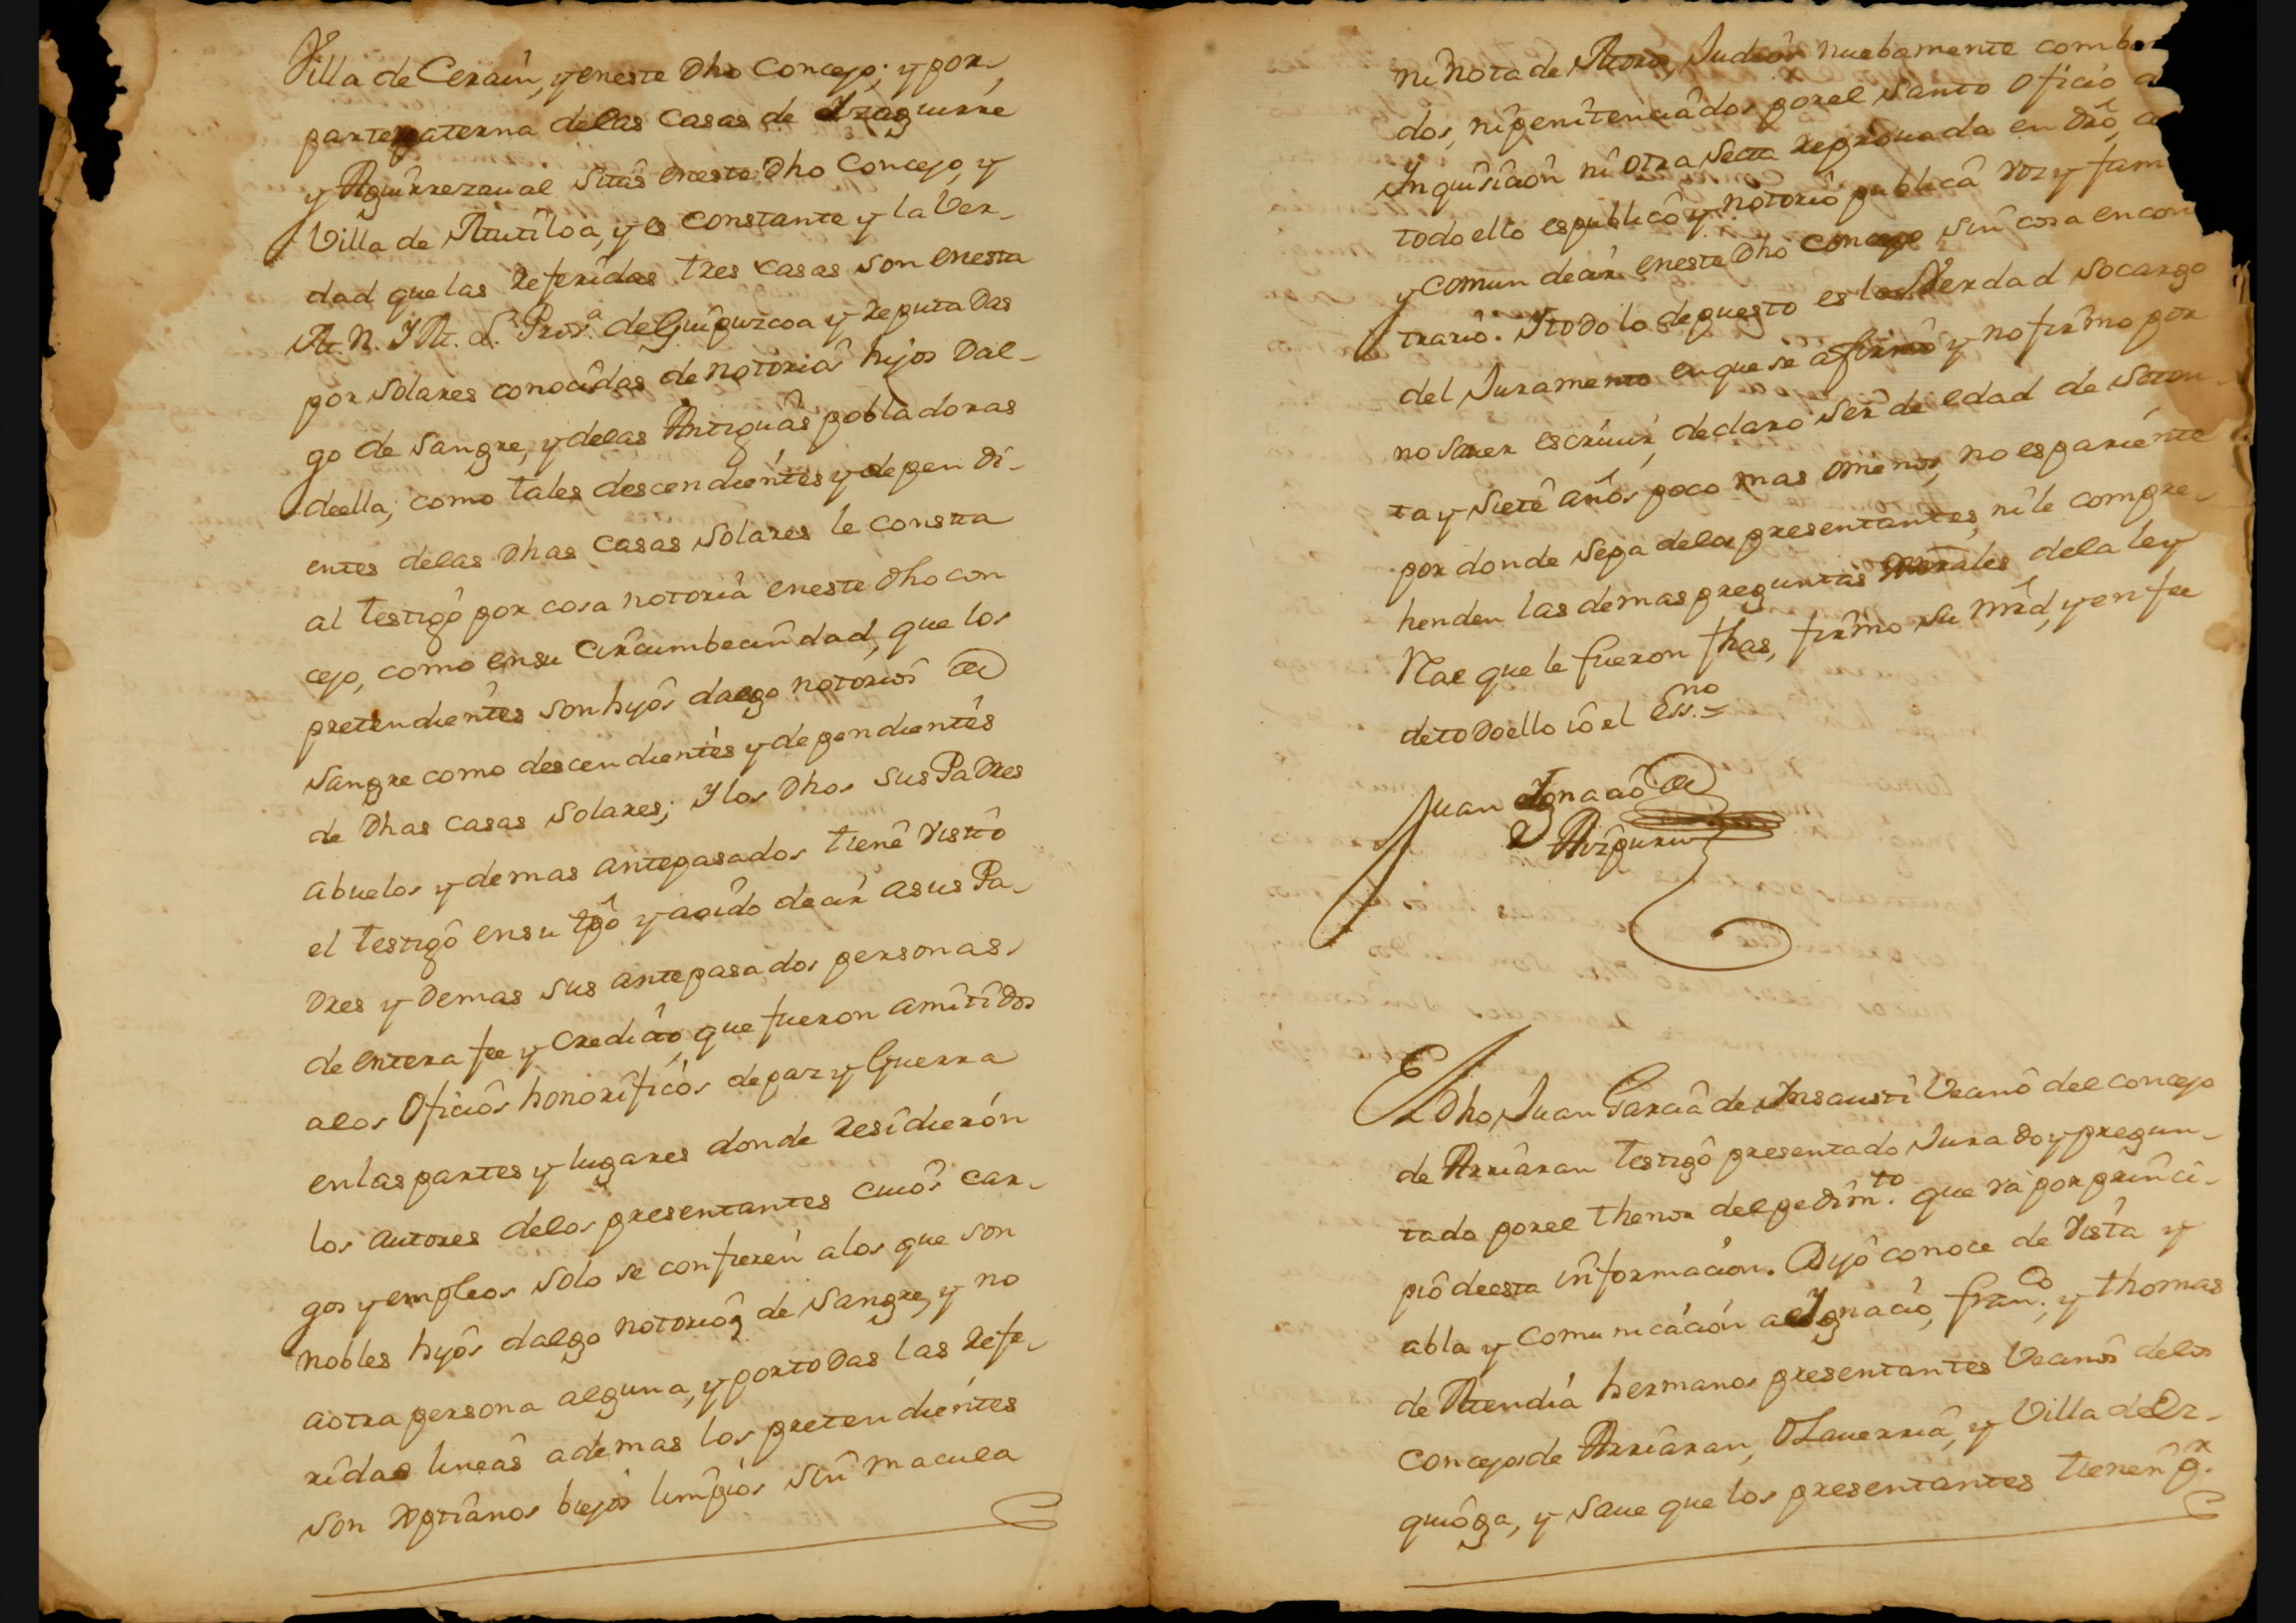 Villa de Cerain, y eneste Dho Concejo; y por
parte paterna delas Casas de Yzaguirre
y Aguirrezaual Sitas eneste Dho Concejo, y
Villa de Mutiloa, y es constante y la Ver-
dad que las Referidas tres casas son enesta
M. N. Y M. L. Prov.a de Guipuzcoa y Reputadas
por Solares conocidas de notorios hijos Dal-
go de Sangre, y delas Antiguas pobladoras
deella; como tales descendientes y dependi-
entes delas Dhas Casas Solares le consta
al testigo por cosa notoria eneste Dho con
cejo, como ensu Circumbecindad, que los
pretendientes son hijos dalgo notorios de
Sangre como descendientes y dependientes
de Dhas casas Solares; Y los Dhos sus Padres
abuelos y demas antepasados tiene Visto
el testigo ensu tpo y aoido decir asus Pa-
Dres y Demas sus antepasados personas
de entera fee y credito, que fueron amitidos
alos Oficios honorificos depaz y Guerra
enlas partes y lugares donde Residieron
los autores delos presentantes cuios car-
gos y empleos solo se confieren alos que son
nobles hijos dalgo notorios de Sangre, y no
aotra persona alguna, y portodas las Refe-
ridas lineas ademas los pretendientes
son Xptianos biejos limpios sin macula
ni nota de Moros, Judios nuebamente comber
dos, nipenitenciados porel Santo Oficio
Ynquisicion ni otra Secta Reprouada en Dro,
todo ello espublico y notorio publica Voz y fam
y comun decir eneste Dho Concejo sin cosa encon
trario. Y todo lo depuesto es la Verdad socargo
del Juramento enque se afirmo y no firmo por
no Sauer escriuir, declaro Ser de edad de Seten-
ta y Siete años poco mas omenos, no espariente
por donde Sepa delos presentantes, nile compre-
henden las demas preguntas Generales dela ley
Rae que le fueron fhas, firmo su mrd, y en fee
detodoello io el Ess.no
Juan Ygnacio de
Aizpuru
El Dho Juan Garcia de Ynsausti Vecino del concejo
de Arriaran testigo presentado Jurado y pregun-
tado porel thenor del pedim.to que va por princi-
pio deesta informacion. Dijo conoce de Vista y
abla y Comunicacion a Ygnacio, Fran.co y thomas
de Mendia hermanos presentantes Vecinos delos
Concejos de Arriaran, OLauerria, y Villa de Or-
quioga, y Saue que los presentantes tienen p.r